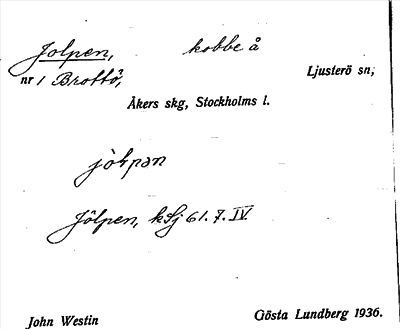 Jolpen, kobbe å
nr 1 Brottö, Ljusterö sn,
Åkers skg, Stockholms l.
jòlpən
Jölpen, kSj 61.7.IV.
John Westin Gösta Lundberg 1936.